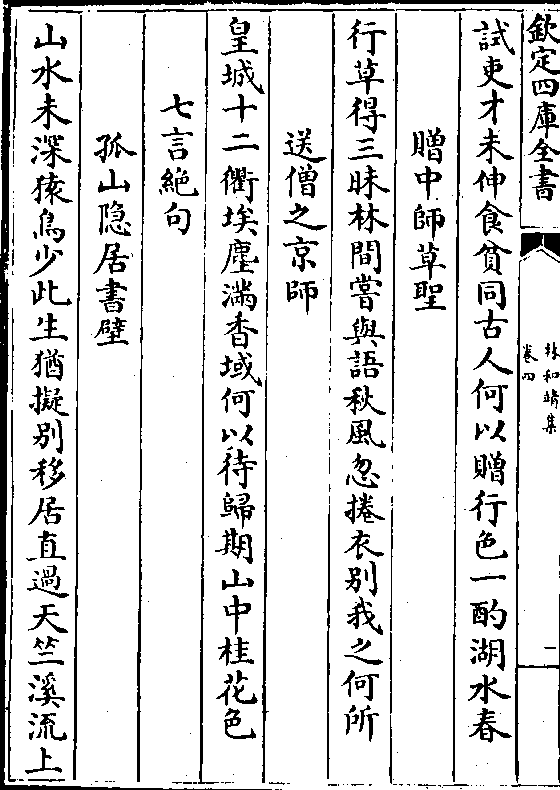 欽定四庫全書
林和靖集
卷四
二
試吏才未伸食貧同古人何以贈行色一酌湖水春
贈中師草聖
行草得三昧林間嘗與語秋風忽捲衣别我之何所
送僧之京師
皇城十二衢埃塵滿香域何以待歸期山中桂花色
七言絶句
孤山隐居書壁
山水未深猿鳥少此生猶擬别移居直過天竺溪流上